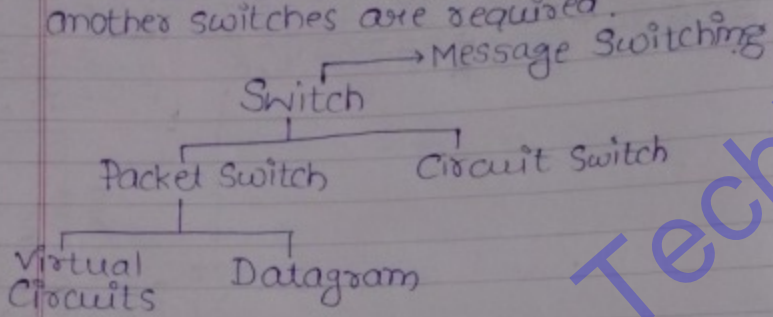 another switches are required.
Message Switching
Switch
Packet Switch
Circuit Switch
Virtual
Circuits
Datagram
Tech